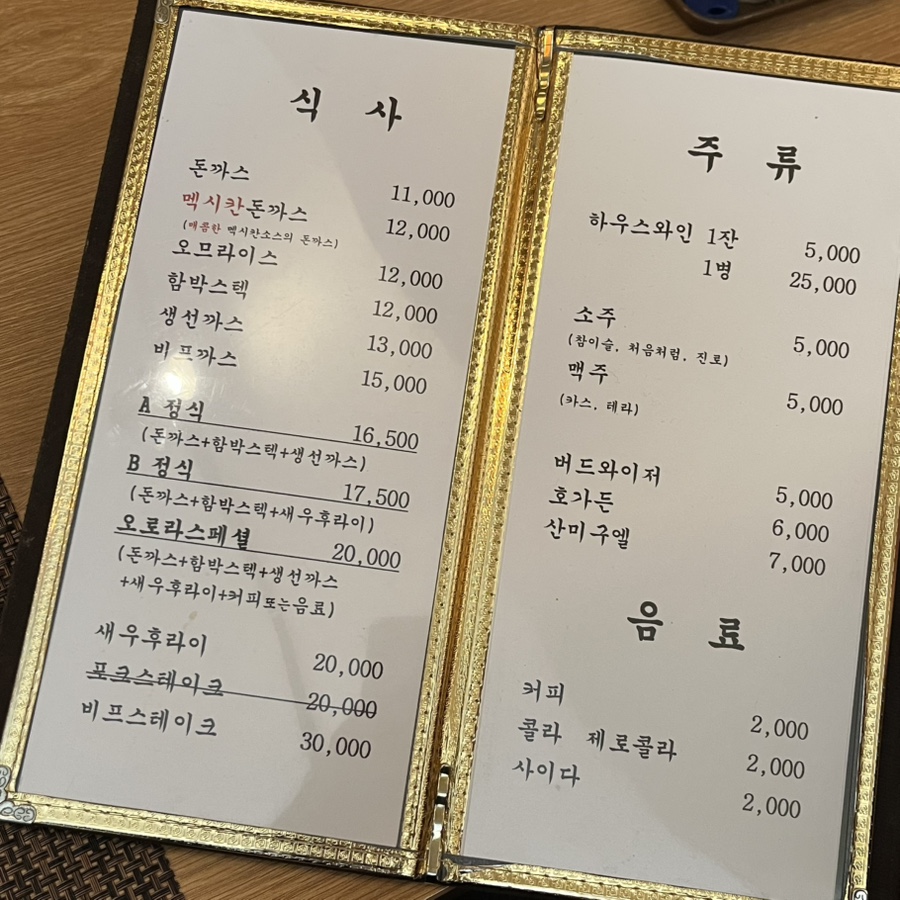 식 사
돈까스 11,000
멕시칸돈까스 12,000
(매콤한 멕시칸소스의 돈까스)
오므라이스 12,000
함박스텍 12,000
생선까스 13,000
비프까스 15,000
A 정식 16,500
(돈까스+함박스텍+생선까스)
B 정식 17,500
(돈까스+함박스텍+새우후라이)
오로라스페셜 20,000
(돈까스+함박스텍+생선까스
+새우후라이+커피또는음료)
새우후라이 20,000
포크스테이크 20,000
비프스테이크 30,000
주 류
하우스와인 1잔 5,000
1병 25,000
소주 5,000
(참이슬, 처음처럼, 진로)
맥주 5,000
(카스, 테라)
버드와이저 5,000
호가든 6,000
산미구엘 7,000
음 료
커피 2,000
콜라 제로콜라 2,000
사이다 2,000